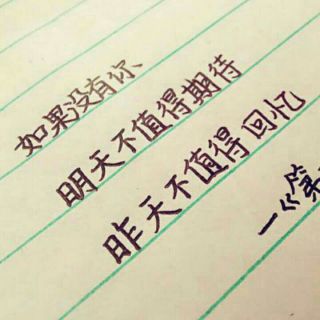 如果没有你
明天不值得期待
昨天不值得回忆
—《第